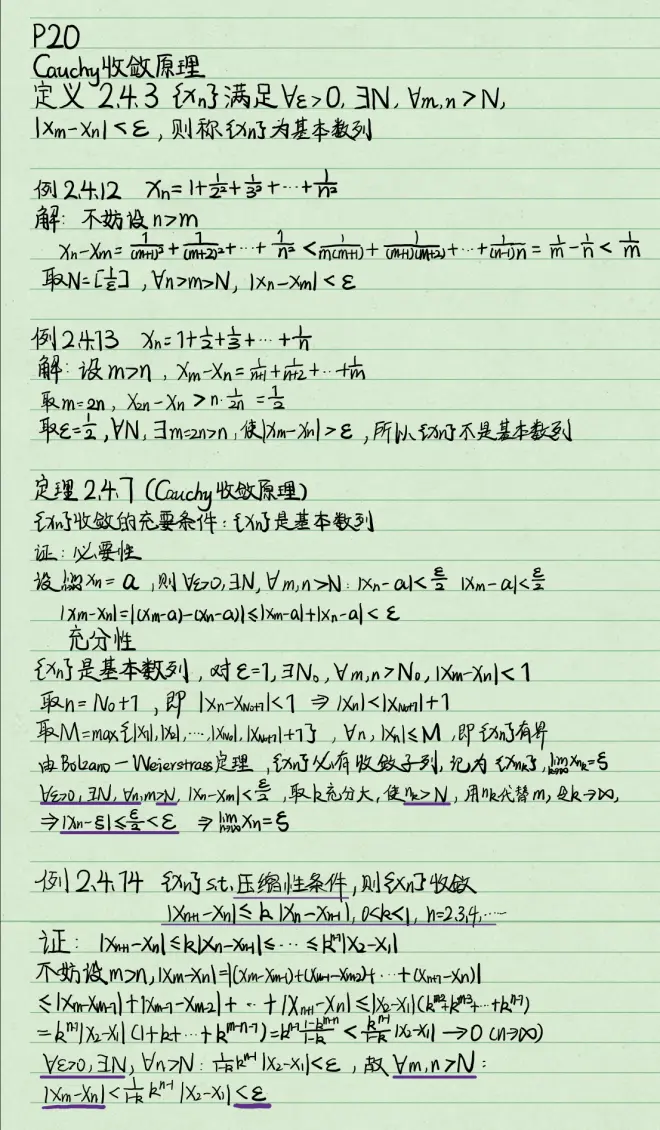 P20
Cauchy收敛原理
定义 2.4.3 {xn}满足∀ε>0, ∃N, ∀m,n>N,
|xm-xn|<ε, 则称{xn}为基本数列
例2.4.12 xn=1+1/2²+1/3²+…+1/n²
解: 不妨设n>m
xn-xm=1/(m+1)²+1/(m+2)²+…+1/n²<1/m(m+1)+1/(m+1)(m+2)+…+1/(n-1)n=1/m-1/n<1/m
取N=[1/ε], ∀n>m>N, |xn-xm|<ε
例2.4.13 xn=1+1/2+1/3+…+1/n
解: 设m>n, xm-xn=1/(n+1)+1/(n+2)+…+1/m
取m=2n, x2n-xn>n·1/2n=1/2
取ε=1/2, ∀N, ∃m=2n>n, 使|xm-xn|>ε, 所以{xn}不是基本数列
定理2.4.7 (Cauchy收敛原理)
{xn}收敛的充要条件: {xn}是基本数列
证: 必要性
设lim xn=a, 则∀ε>0, ∃N, ∀m,n>N: |xn-a|<ε/2 |xm-a|<ε/2
|xm-xn|=|(xm-a)-(xn-a)|≤|xm-a|+|xn-a|<ε
充分性
{xn}是基本数列, 对ε=1, ∃N₀, ∀m,n>N₀, |xm-xn|<1
取n=N₀+1, 即 |xn-xN₀+1|<1 ⇒ |xn|<|xN₀+1|+1
取M=max{|x1|,|x2|,…,|xN₀|,|xN₀+1|+1}, ∀n, |xn|≤M, 即{xn}有界
由Bolzano-Weierstrass定理, {xn}必有收敛子列, 记为{xnk}, lim k→∞ xnk=ξ
∀ε>0, ∃N, ∀n,m>N, |xn-xm|<ε/2, 取k充分大, 使nk>N, 用nk代替m, 令k→∞,
⇒|xn-ξ|≤ε/2<ε ⇒ lim n→∞ xn=ξ
例2.4.14 {xn} s.t. 压缩性条件, 则{xn}收敛
|xn+1-xn|≤k|xn-xn-1|, 0<k<1, n=2,3,4,…
证: |xn+1-xn|≤k|xn-xn-1|≤…≤kⁿ⁻¹|x2-x1|
不妨设m>n, |xm-xn|=|(xm-xm-1)+(xm-1-xm-2)+…+(xn+1-xn)|
≤|xm-xm-1|+|xm-1-xm-2|+…+|xn+1-xn|≤|x2-x1|(kᵐ⁻²+kᵐ⁻³+…+kⁿ⁻¹)
=kⁿ⁻¹|x2-x1|(1+k+…+kᵐ⁻ⁿ⁻¹)=kⁿ⁻¹ (1-kᵐ⁻ⁿ)/(1-k)<kⁿ⁻¹/(1-k) |x2-x1|→0 (n→∞)
∀ε>0, ∃N, ∀n>N: 1/(1-k) kⁿ⁻¹|x2-x1|<ε, 故∀m,n>N:
|xm-xn|<1/(1-k) kⁿ⁻¹|x2-x1|<ε